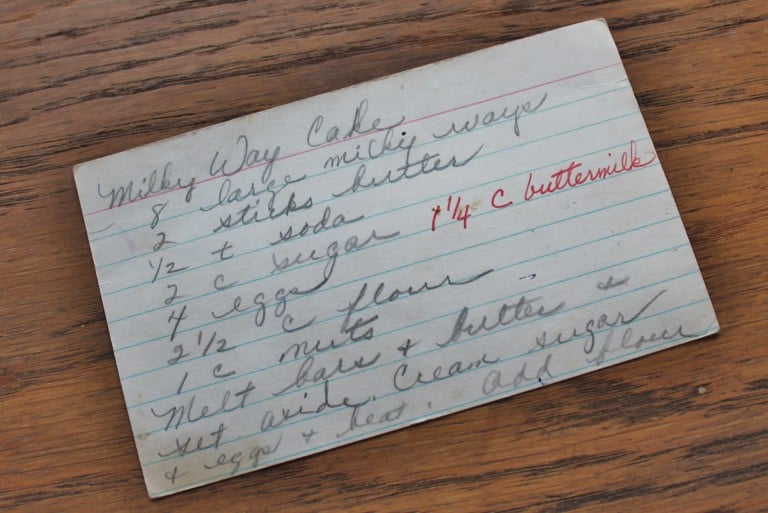 Milky Way Cake
8 large milky ways
2 sticks butter
1/2 t soda
2 c sugar 1 1/4 C buttermilk
4 eggs
2 1/2 c flour
1 c nuts
Melt bars + butter +
set aside. Cream sugar
+ eggs + beat. Add flour